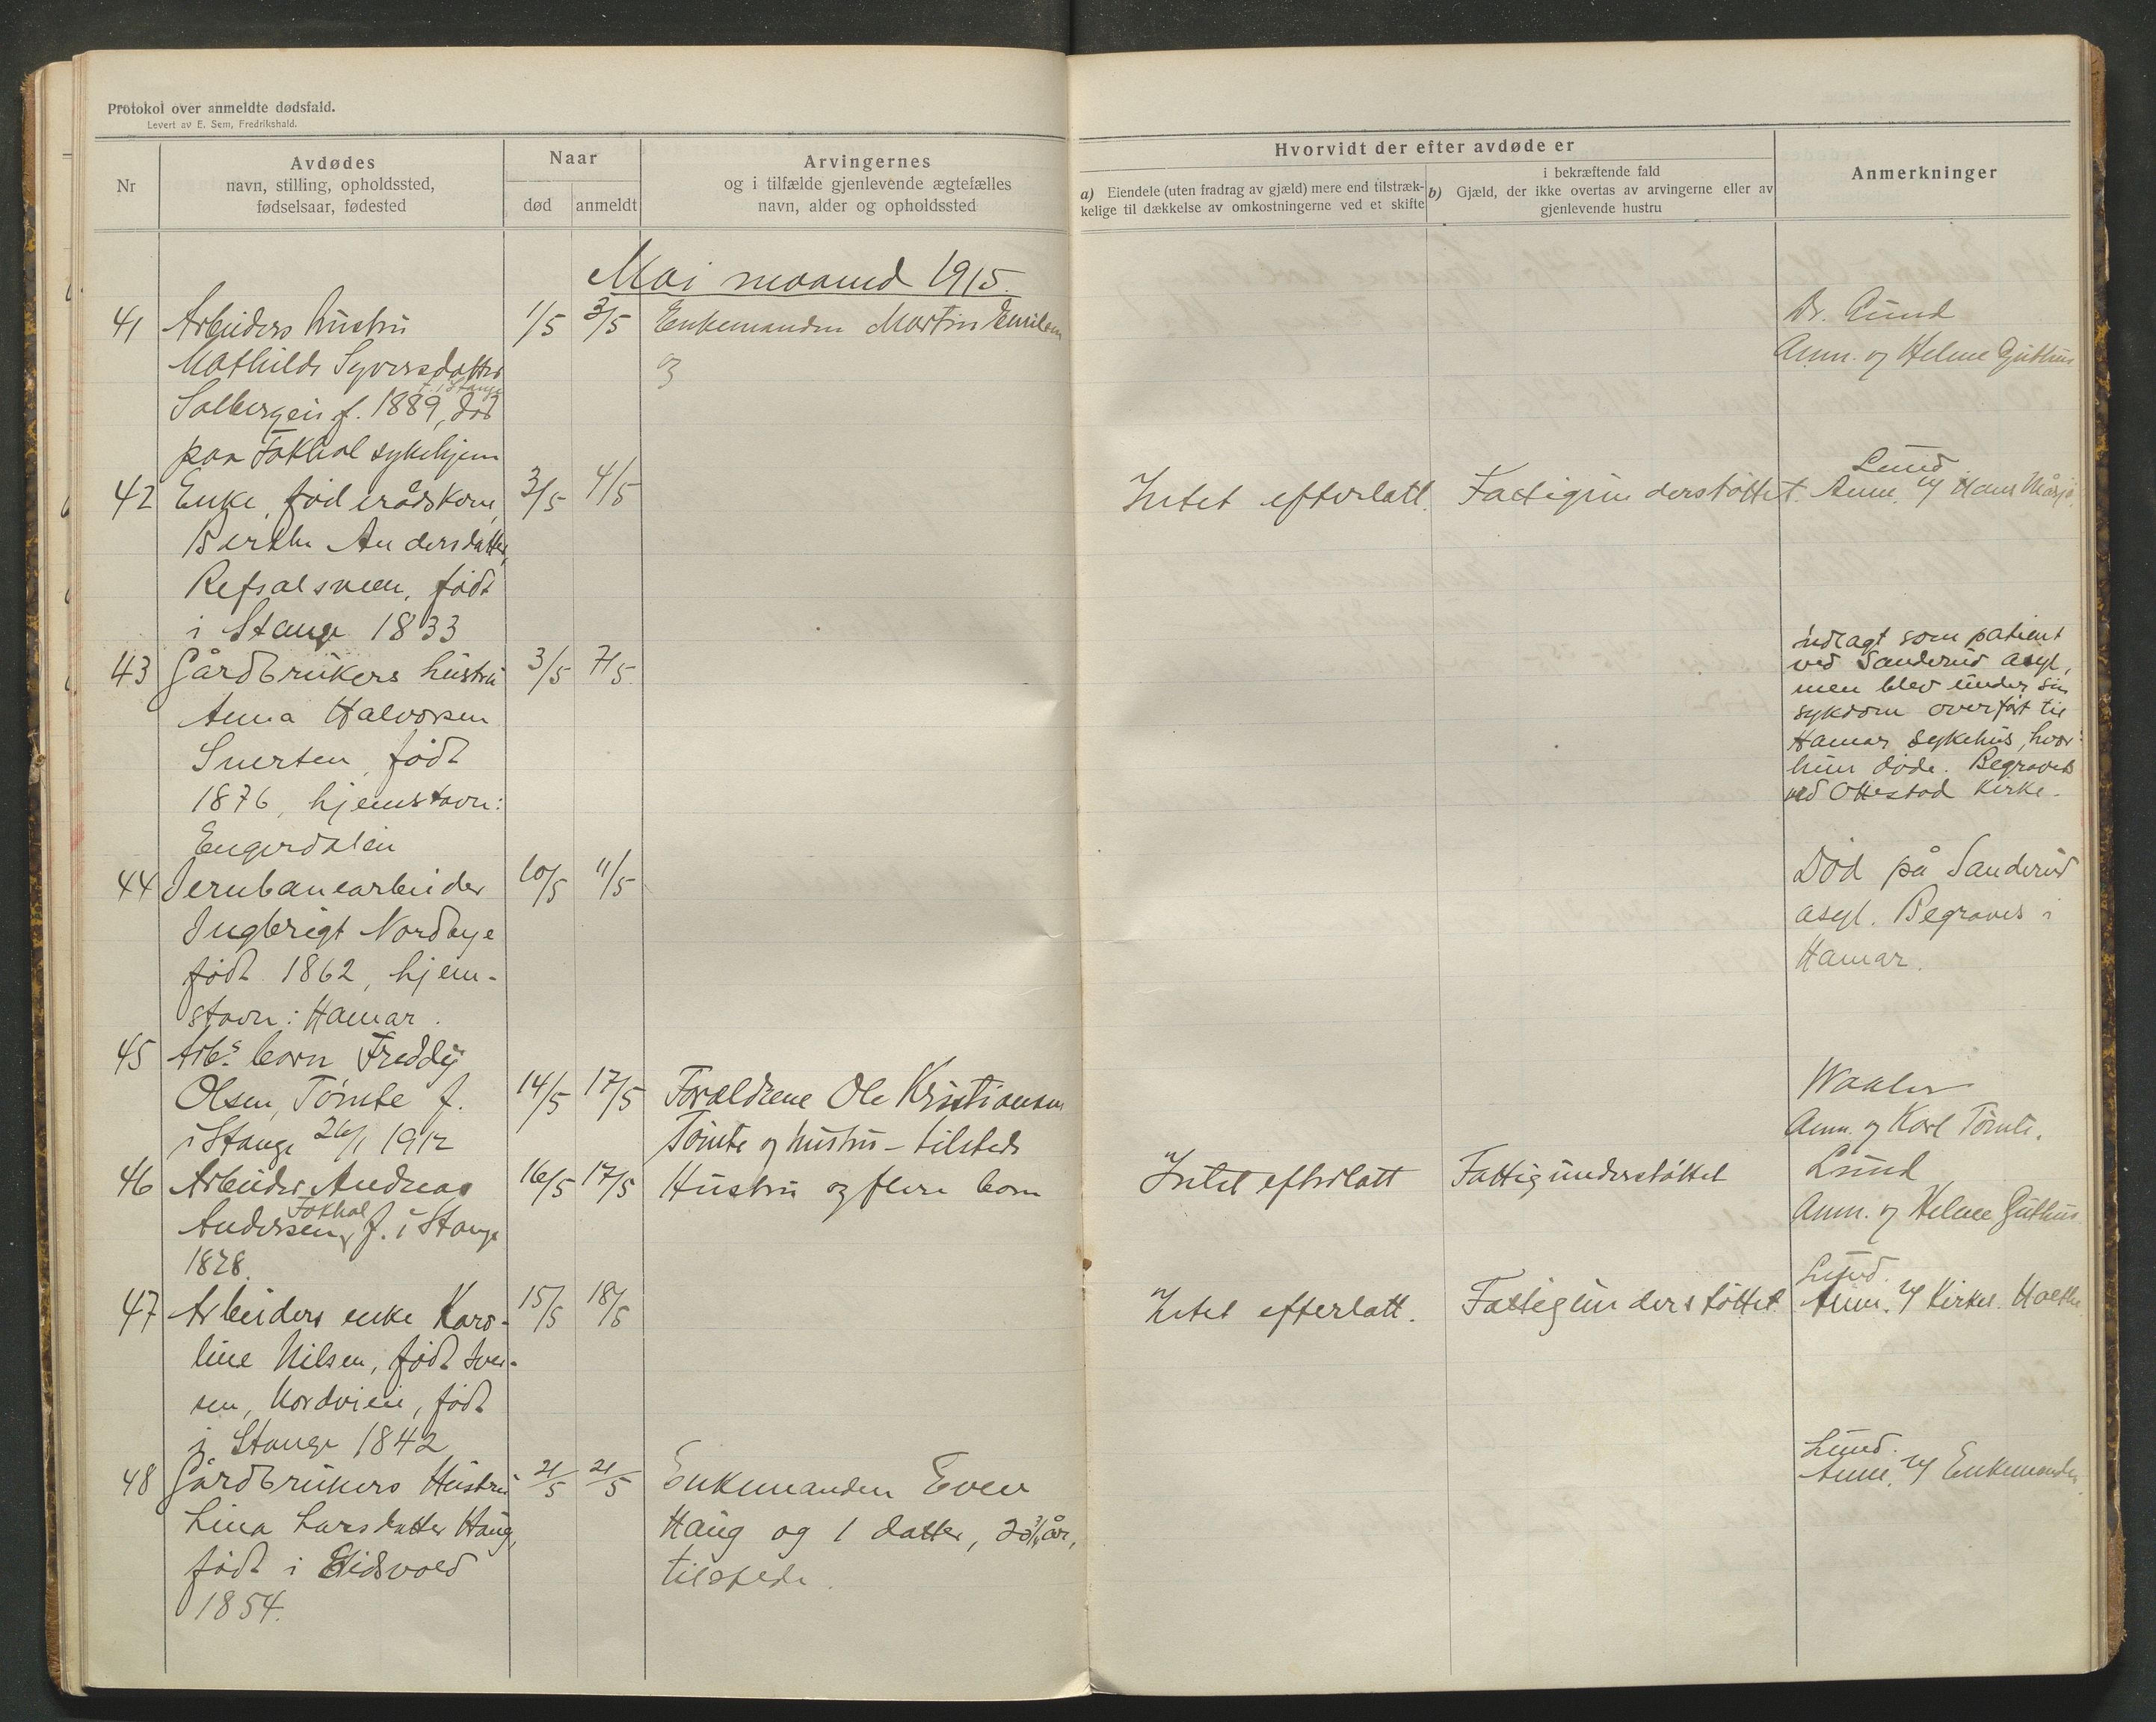 Protokol over anmeldte dødsfald.
Levert av E. Sem, Fredrikshald.
Nr
Avdødes
navn, stilling, opholdssted,
fødselsaar, fødested
Naar
død
anmeldt
Arvingernes
og i tilfælde gjenlevende ægtefælles
navn, alder og opholdssted
Hvorvidt der efter avdøde er
a) Eiendele (uten fradrag av gjæld) mere end tilstræk-
kelige til dækkelse av omkostningerne ved et skifte
i bekræftende fald
b) Gjæld, der ikke overtas av arvingerne eller av
gjenlevende hustru
Anmerkninger
Mai maaned 1915.
41 Arbeiders hustru 1/5 3/5 Enkemanden Martin Emilsen Dr. Lund
Mathilde Syversdatter og Anm. og Helme Guthus
f. i Stange
Solbergeie f. 1889, død
paa Fokhol sykehjem
Lund
42 Enke, føderådskone, 3/5 4/5 Intet efterlatt. Fattigunderstøttet. Anm. og Hans
Berthe Andersdatter,
Refsalsveen, født
i Stange 1833
43 Gårdbrukers hustru 3/5 7/5 indlagt som patient
ved Sanderud asyl,
Anna Halvorsen men blev under sin
sykdom overført til
Snerten, født Hamar sykehus, hvor
1876, hjemstavn: hun døde. Begraves
ved Ottestad Kirke.
Engerdalen
44 Jernbanearbeider 10/5 11/5 Død på Sanderud
Ingbrigt Nordbye asyl. Begraves i
født 1862, hjem- Hamar.
stavn: Hamar.
45 Arbs. barn Freddy
Olsen, Tomte f. 14/5 17/5 Forældrene Ole Kristiansen Waaler
i Stange 26/1 1912 Tomte og hustru - tilsteds Anm. og Karl Tomte.
46 Arbeider Andreas 16/5 17/5 Hustru og flere barn Intet efterlatt Fattigunderstøttet Lund
Fokhol
Andersen, f. i Stange Anm. og Helme Guthus
1828.
Lund.
47 Arbeiders enke Karo- 15/5 18/5 Intet efterlatt. Fattigunderstøttet Anm. og Kirkes.
line Nilsen, født Iver-
sen, Nordvieie, født
i Stange 1842
Lund.
48 Gårdbrukers Hustru 21/5 21/5 Enkemanden Even Anm. og Enkemanden.
Lina Larsdatter Haug, Haug og 1 datter, 20 3/4 år,
født i Eidsvold tilstede.
1854.